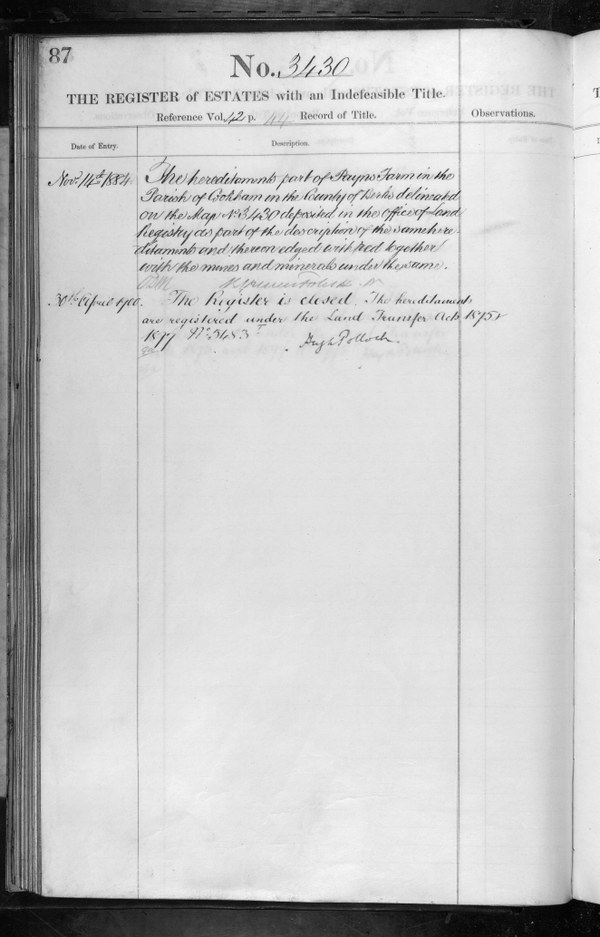 87
No. 3430
THE REGISTER of ESTATES with an Indefeasible Title.
Reference Vol. 42 p. Record of Title.
Observations.
Date of Entry.
Description.
Novr. 14th 1884
The hereditaments part of Farm in the
Parish of Cookham in the County of Berks delineated
on the Map No. 3430 deposited in the Office of Land
Registry as part of the description of the same here
ditaments and thereon edged with red together
with the mines and minerals under the same.
30th April 1900.
The Register is closed. The hereditaments
are registered under the Land Transfer Acts 1875 &
1897 No. 3483
Hugh Pollock